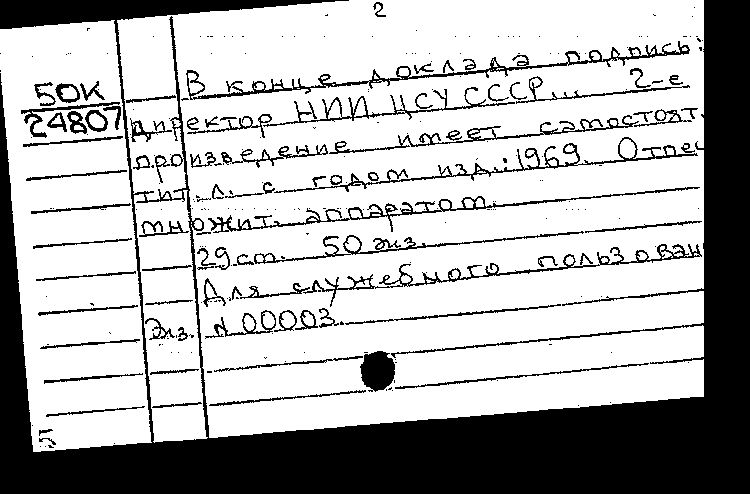 2
В конце доклада подпись:
50К
24807
директор НИИ ЦСУ СССР... 2-е
произведение имеет самостоят.
тит. л. с годом изд.: 1969. Отпеч
множит. аппаратом.
29 ст. 50 экз.
Для служебного пользован
Экз. N 00003.
5